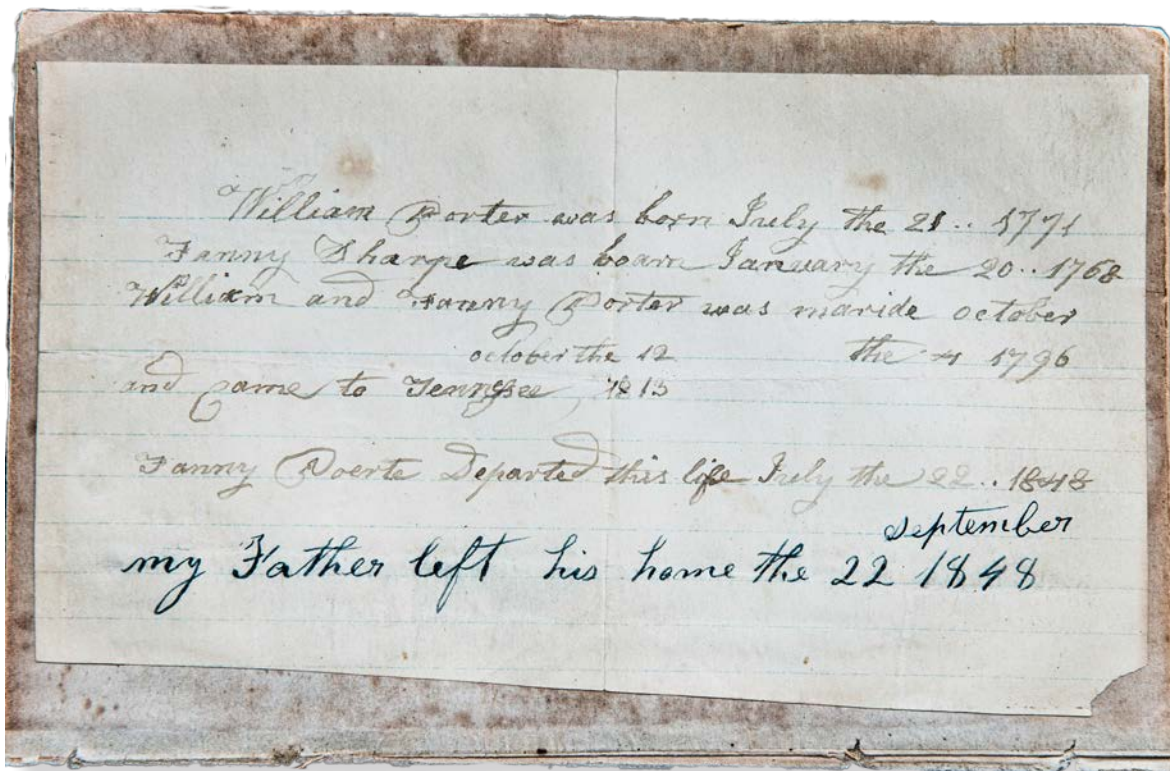 William Porter was born July the 21 .. 1771
Fanny Sharpe was boarn January the 20 .. 1768
William and Fanny Porter was maride october
october the 12 the 4 1796
and came to Tennssee, 1813
Fanny Poerte Departed this life July the 22 .. 1848
september
my Father left his home the 22 1848